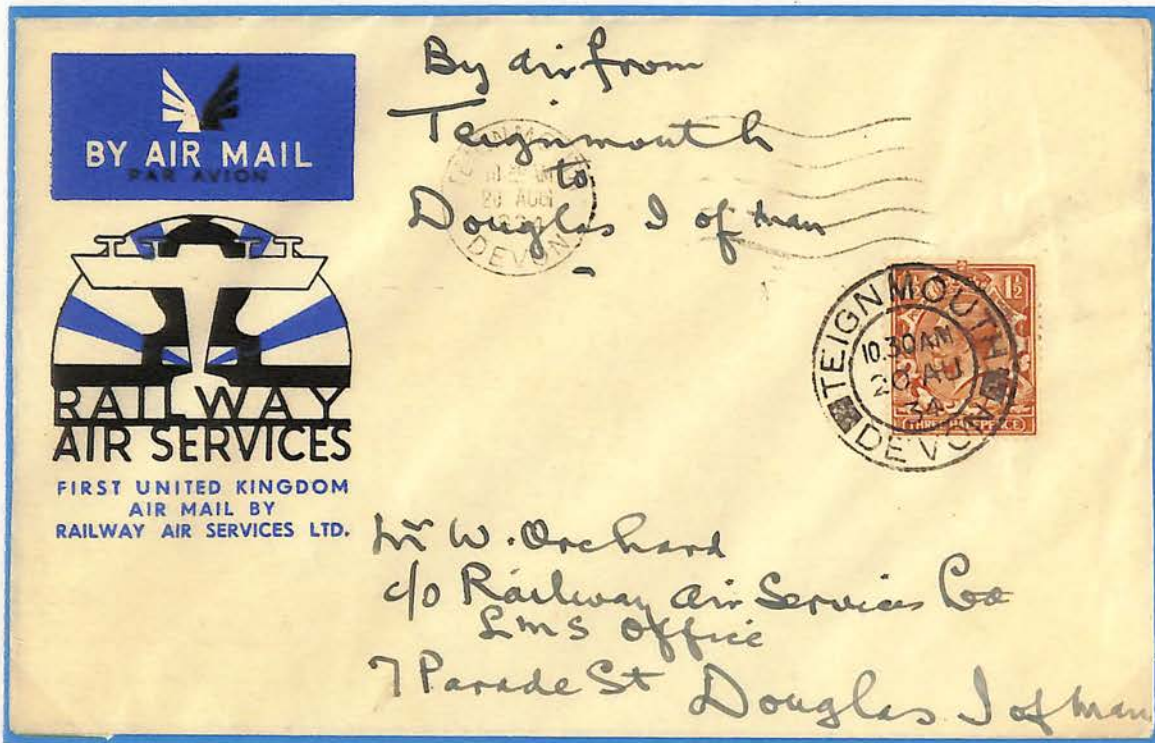 BY AIR MAIL
PAR AVION
RAILWAY
AIR SERVICES
FIRST UNITED KINGDOM
AIR MAIL BY
RAILWAY AIR SERVICES LTD.
By air from
Teignmouth
to
Douglas I of man
TEIGNMOUTH
20 AUG
1934
DEVON
1½
TEIGNMOUTH
10.30 AM
20 AU
34
DEVON
THREE HALFPENCE
Mr W. Orchard
c/o Railway Air Services Co
LMS Office
7 Parade St Douglas I of man